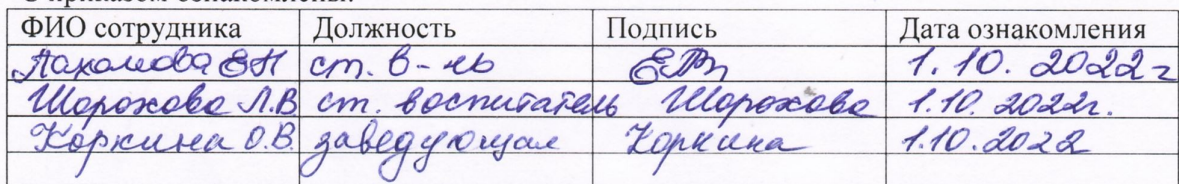 С приказом ознакомлены:
ФИО сотрудника Должность Подпись Дата ознакомления
Пахомова ЕН ст. в-ль 1.10.2022г
Шорохова Л.В ст. воспитатель Шорохова 1.10.2022г.
Коркина О.В. заведующая Коркина 1.10.2022